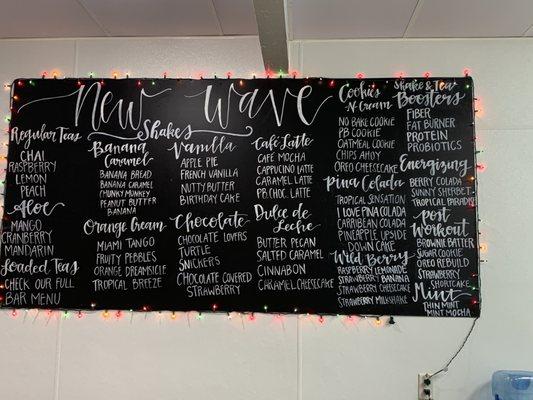 New Wave
Shakes
Regular Teas
CHAI
RASPBERRY
LEMON
PEACH
Aloe
MANGO
CRANBERRY
MANDARIN
Loaded Teas
CHECK OUR FULL
BAR MENU
Banana
Caramel
BANANA BREAD
BANANA CARAMEL
CHUNKY MUNKEY
PEANUT BUTTER
BANANA
Orange Cream
MIAMI TANGO
FRUITY PEBBLES
ORANGE DREAMSICLE
TROPICAL BREEZE
Vanilla
APPLE PIE
FRENCH VANILLA
NUTTY BUTTER
BIRTHDAY CAKE
Chocolate
CHOCOLATE LOVERS
TURTLE
SNICKERS
CHOCOLATE COVERED
STRAWBERRY
Café Latte
CAFÉ MOCHA
CAPPUCINO LATTE
CARAMEL LATTE
PB. CHOC. LATTE
Dulce de
Leche
BUTTER PECAN
SALTED CARAMEL
CINNABON
CARAMEL CHEESECAKE
Cookies
N Cream
NO BAKE COOKIE
PB COOKIE
OATMEAL COOKIE
CHIPS AHOY
OREO CHEESECAKE
Pina Colada
TROPICAL SENSATION
I LOVE PINA COLADA
CARRIBEAN COLADA
PINEAPPLE UPSIDE
DOWN CAKE
Wild Berry
RASPBERRY LEMONADE
STRAWBERRY BANANA
STRAWBERRY CHEESECAKE
STRAWBERRY MILKSHAKE
Shake & Tea
Boosters
FIBER
FAT BURNER
PROTEIN
PROBIOTICS
Energizing
BERRY COLADA
SUNNY SHERBET
TROPICAL PARADISE
Post
Workout
BROWNIE BATTER
SUGAR COOKIE
OREO REBUILD
STRAWBERRY
SHORTCAKE
Mint
THIN MINT
MINT MOCHA